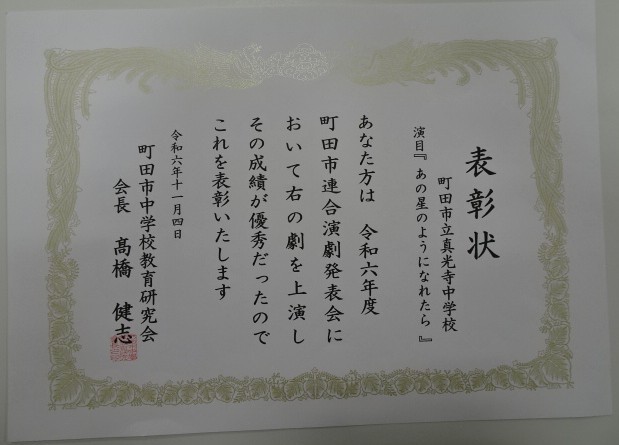 表彰状
町田市立真光寺中学校
演目『あの星のようになれたら』
あなた方は 令和六年度
町田市連合演劇発表会に
おいて右の劇を上演し
その成績が優秀だったので
これを表彰いたします
令和六年十一月四日
町田市中学校教育研究会
会長 髙橋 健志